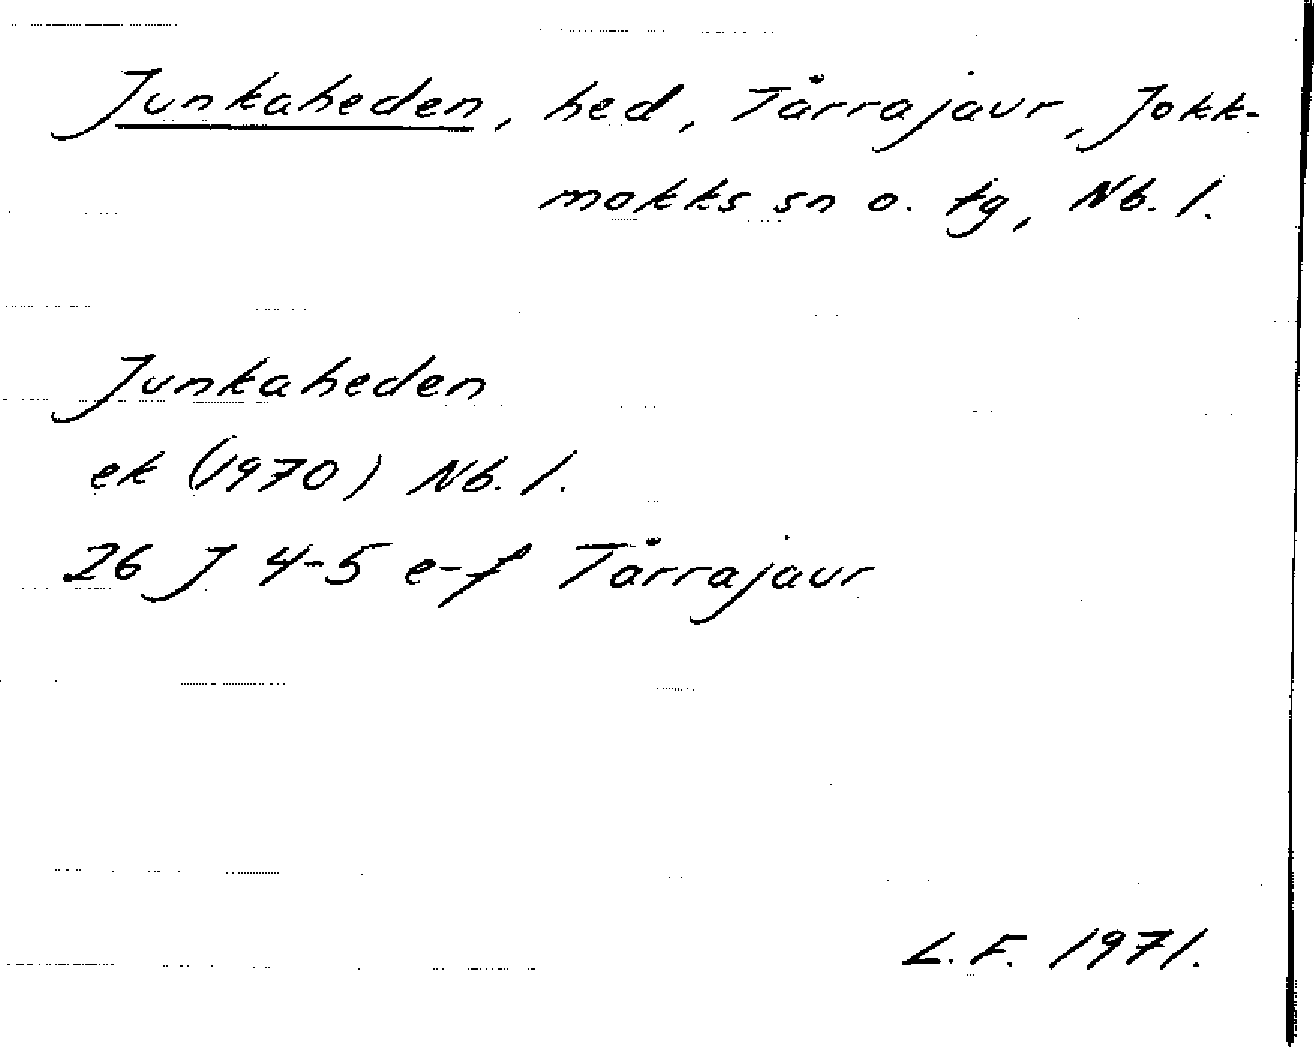 Junkaheden, hed, Tårrajaur, Jokk-
mokks sn o. tg, Nb. l.
Junkaheden
ek (1970) Nb. l.
26 J 4-5 e-f Tårrajaur
L. F. 1971.